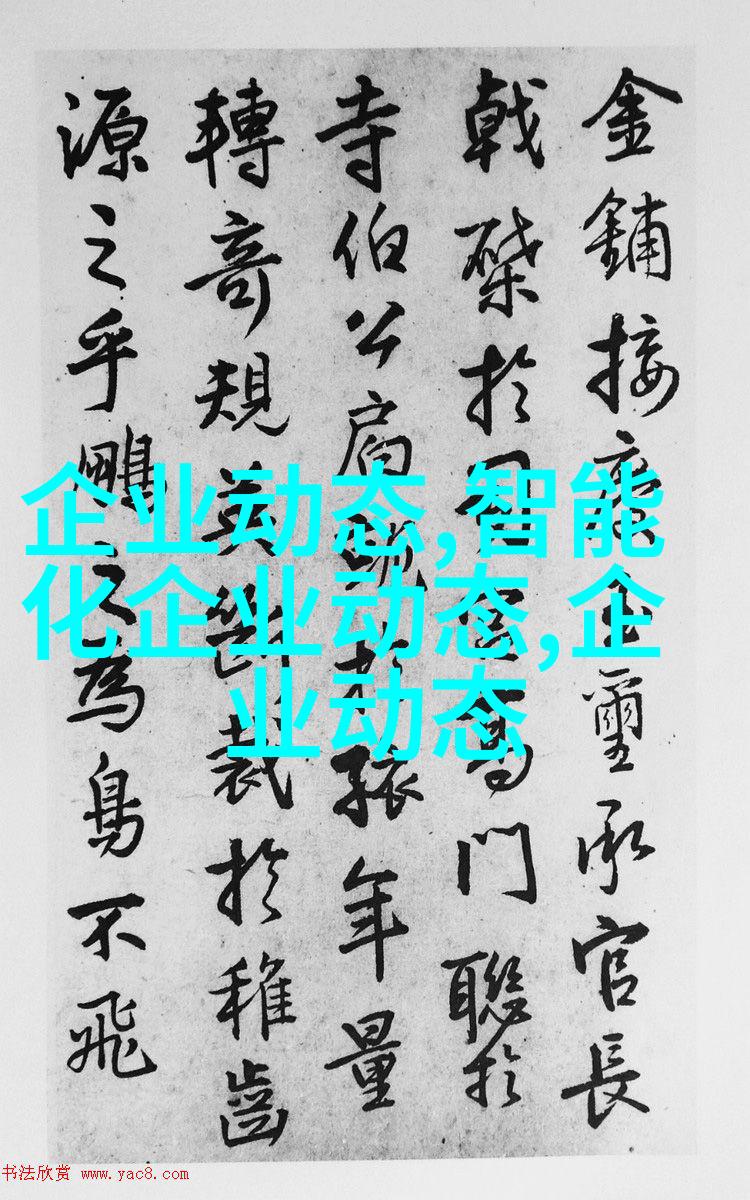 金鋪接慶璽承官長
戟棨於門聯於
寺伯公肩孺年量
轉奇規英斷裁於稚齒
源之乎鵬之為鳥不飛
企业动态,智能
化企业动态,企
业动态
书法欣赏 www.yac8.com